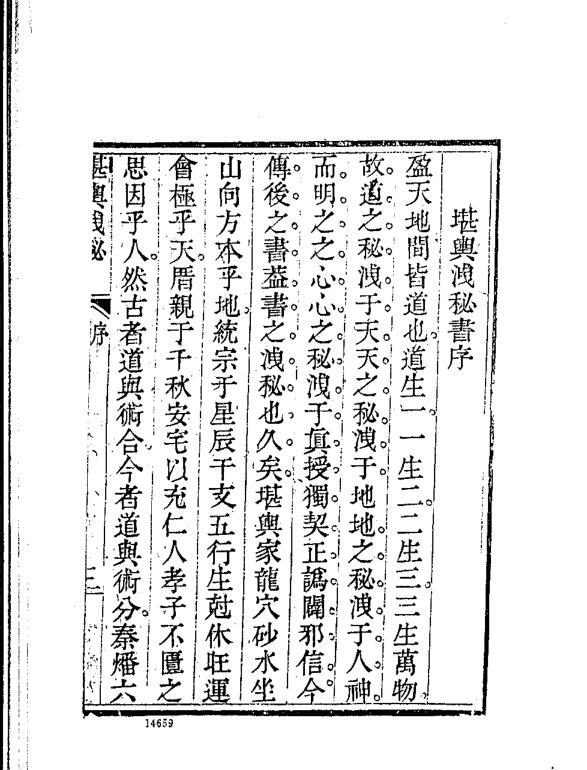 堪輿洩秘書序
盈天地間皆道也。道生一。一生二。二生三。三生萬物。
故道之秘洩于天。天之秘洩于地。地之秘洩于人。神
而明之之心。心之秘洩于眞授。獨契正譌闢邪。信今
傳後之書。葢書之洩秘也久矣。堪輿家龍穴砂水坐
山向方本乎地。統宗于星辰干支五行生尅休旺運
會極乎天。厝親于千秋安宅以充仁人孝子不匱之
思因乎人。然古者道與術合今者道與術分。秦燔六
堪輿洩秘
序
三
14659